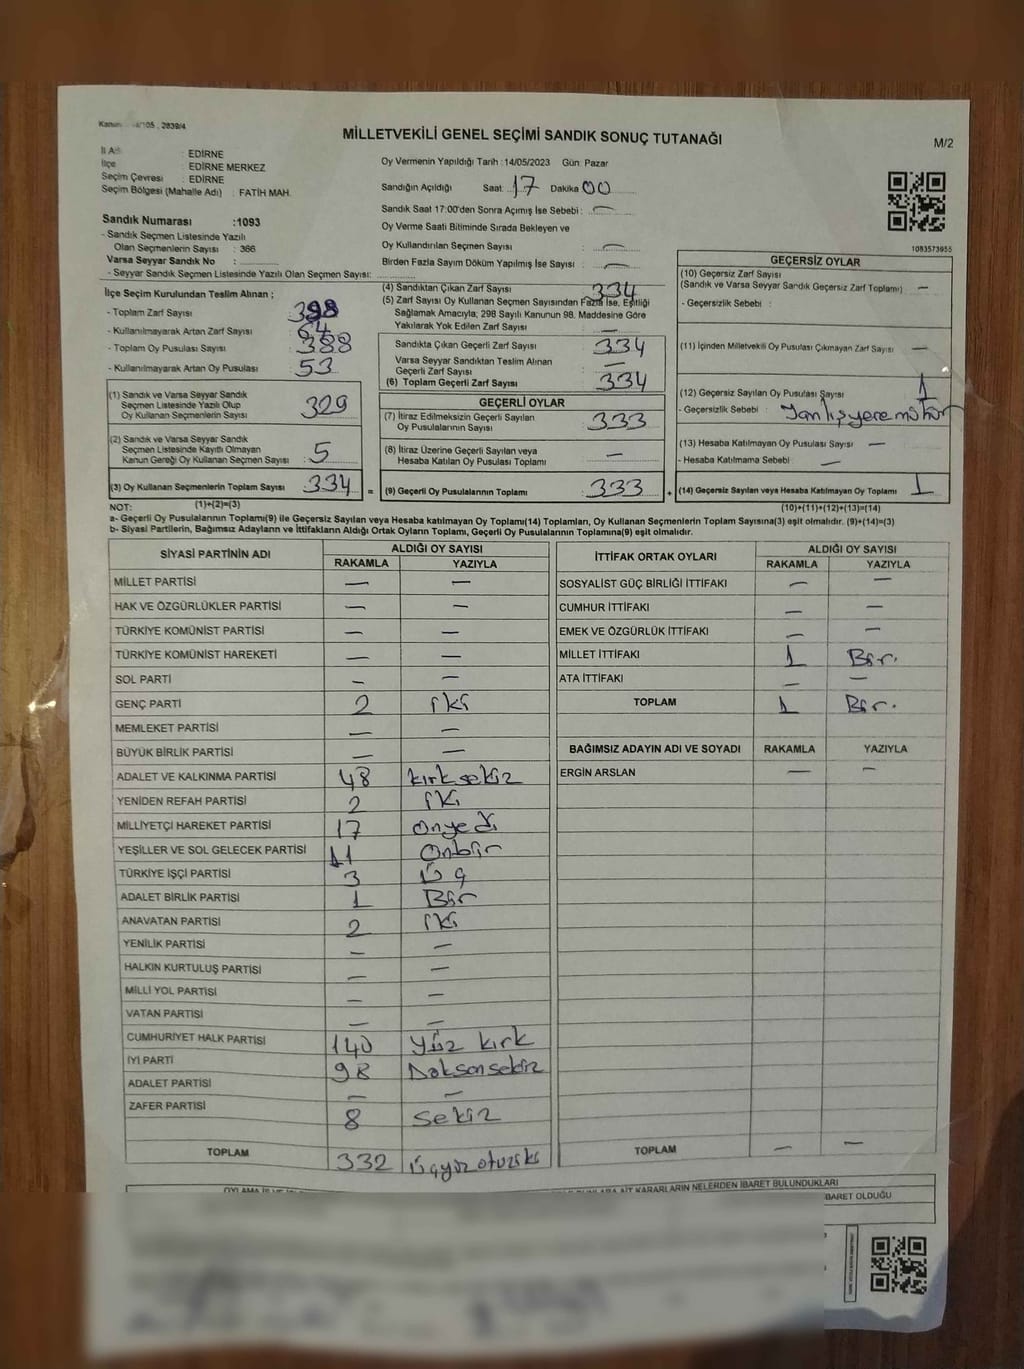 2839/4
MİLLETVEKİLİ GENEL SEÇİMİ SANDIK SONUÇ TUTANAĞI
M/2
: EDİRNE
İlçe : EDİRNE MERKEZ
Seçim Çevresi : EDİRNE
Seçim Bölgesi (Mahalle Adı) : FATİH MAH.
Sandık Numarası :1093
- Sandık Seçmen Listesinde Yazılı
Olan Seçmenlerin Sayısı : 366
Varsa Seyyar Sandık No :
- Seyyar Sandık Seçmen Listesinde Yazılı Olan Seçmen Sayısı:
Oy Vermenin Yapıldığı Tarih : 14/05/2023 Gün: Pazar
Sandığın Açıldığı Saat 17 Dakika 00
Sandık Saat 17:00'den Sonra Açımış İse Sebebi : —
Oy Verme Saati Bitiminde Sırada Bekleyen ve
Oy Kullandırılan Seçmen Sayısı : —
Birden Fazla Sayım Döküm Yapılmış İse Sayısı : —
1083573955
İlçe Seçim Kurulundan Teslim Alınan ;
- Toplam Zarf Sayısı : 398
- Kullanılmayarak Artan Zarf Sayısı : 64
- Toplam Oy Pusulası Sayısı : 388
- Kullanılmayarak Artan Oy Pusulası : 53
(1) Sandık ve Varsa Seyyar Sandık
Seçmen Listesinde Yazılı Olup
Oy Kullanan Seçmenlerin Sayısı : 329
(2) Sandık ve Varsa Seyyar Sandık
Seçmen Listesinde Kayıtlı Olmayan
Kanun Gereği Oy Kullanan Seçmen Sayısı : 5
(3) Oy Kullanan Seçmenlerin Toplam Sayısı : 334 =
(4) Sandıktan Çıkan Zarf Sayısı : 334
(5) Zarf Sayısı Oy Kullanan Seçmen Sayısından Fazla İse, Eşitliği
Sağlamak Amacıyla, 298 Sayılı Kanunun 98. Maddesine Göre
Yakılarak Yok Edilen Zarf Sayısı : —
Sandıkta Çıkan Geçerli Zarf Sayısı : 334
Varsa Seyyar Sandıktan Teslim Alınan
Geçerli Zarf Sayısı : —
(6) Toplam Geçerli Zarf Sayısı : 334
GEÇERLİ OYLAR
(7) İtiraz Edilmeksizin Geçerli Sayılan
Oy Pusulalarının Sayısı : 333
(8) İtiraz Üzerine Geçerli Sayılan veya
Hesaba Katılan Oy Pusulası Toplamı : —
(9) Geçerli Oy Pusulalarının Toplamı : 333 +
GEÇERSİZ OYLAR
(10) Geçersiz Zarf Sayısı
(Sandık ve Varsa Seyyar Sandık Geçersiz Zarf Toplamı) : —
- Geçersizlik Sebebi :
(11) İçinden Milletvekili Oy Pusulası Çıkmayan Zarf Sayısı : —
(12) Geçersiz Sayılan Oy Pusulası Sayısı : 1
- Geçersizlik Sebebi : Yanlış yere mühür
(13) Hesaba Katılmayan Oy Pusulası Sayısı : —
- Hesaba Katılmama Sebebi : —
(14) Geçersiz Sayılan veya Hesaba Katılmayan Oy Toplamı : 1
NOT: (1)+(2)=(3) (10)+(11)+(12)+(13)=(14)
a- Geçerli Oy Pusulalarının Toplamı(9) ile Geçersiz Sayılan veya Hesaba katılmayan Oy Toplamı(14) Toplamları, Oy Kullanan Seçmenlerin Toplam Sayısına(3) eşit olmalıdır. (9)+(14)=(3)
b- Siyasi Partilerin, Bağımsız Adayların ve İttifakların Aldığı Ortak Oyların Toplamı, Geçerli Oy Pusulalarının Toplamına(9) eşit olmalıdır.
SİYASİ PARTİNİN ADI ALDIĞI OY SAYISI
RAKAMLA YAZIYLA
MİLLET PARTİSİ — —
HAK VE ÖZGÜRLÜKLER PARTİSİ — —
TÜRKİYE KOMÜNİST PARTİSİ — —
TÜRKİYE KOMÜNİST HAREKETİ — —
SOL PARTİ — —
GENÇ PARTİ 2 iki
MEMLEKET PARTİSİ — —
BÜYÜK BİRLİK PARTİSİ — —
ADALET VE KALKINMA PARTİSİ 48 kırk sekiz
YENİDEN REFAH PARTİSİ 2 iki
MİLLİYETÇİ HAREKET PARTİSİ 17 onyedi
YEŞİLLER VE SOL GELECEK PARTİSİ 11 Onbir
TÜRKİYE İŞÇİ PARTİSİ 3 Üç
ADALET BİRLİK PARTİSİ 1 Bir
ANAVATAN PARTİSİ 2 iki
YENİLİK PARTİSİ — —
HALKIN KURTULUŞ PARTİSİ — —
MİLLİ YOL PARTİSİ — —
VATAN PARTİSİ — —
CUMHURİYET HALK PARTİSİ 140 Yüz kırk
İYİ PARTİ 98 Doksan sekiz
ADALET PARTİSİ — —
ZAFER PARTİSİ 8 sekiz
TOPLAM 332 Üçyüz otuziki
İTTİFAK ORTAK OYLARI ALDIĞI OY SAYISI
RAKAMLA YAZIYLA
SOSYALİST GÜÇ BİRLİĞİ İTTİFAKI — —
CUMHUR İTTİFAKI — —
EMEK VE ÖZGÜRLÜK İTTİFAKI — —
MİLLET İTTİFAKI 1 Bir.
ATA İTTİFAKI — —
TOPLAM 1 Bir.
BAĞIMSIZ ADAYIN ADI VE SOYADI RAKAMLA YAZIYLA
ERGİN ARSLAN — —
TOPLAM — —
KARARLARIN NELERDEN İBARET BULUNDUKLARI
İBARET OLDUĞU